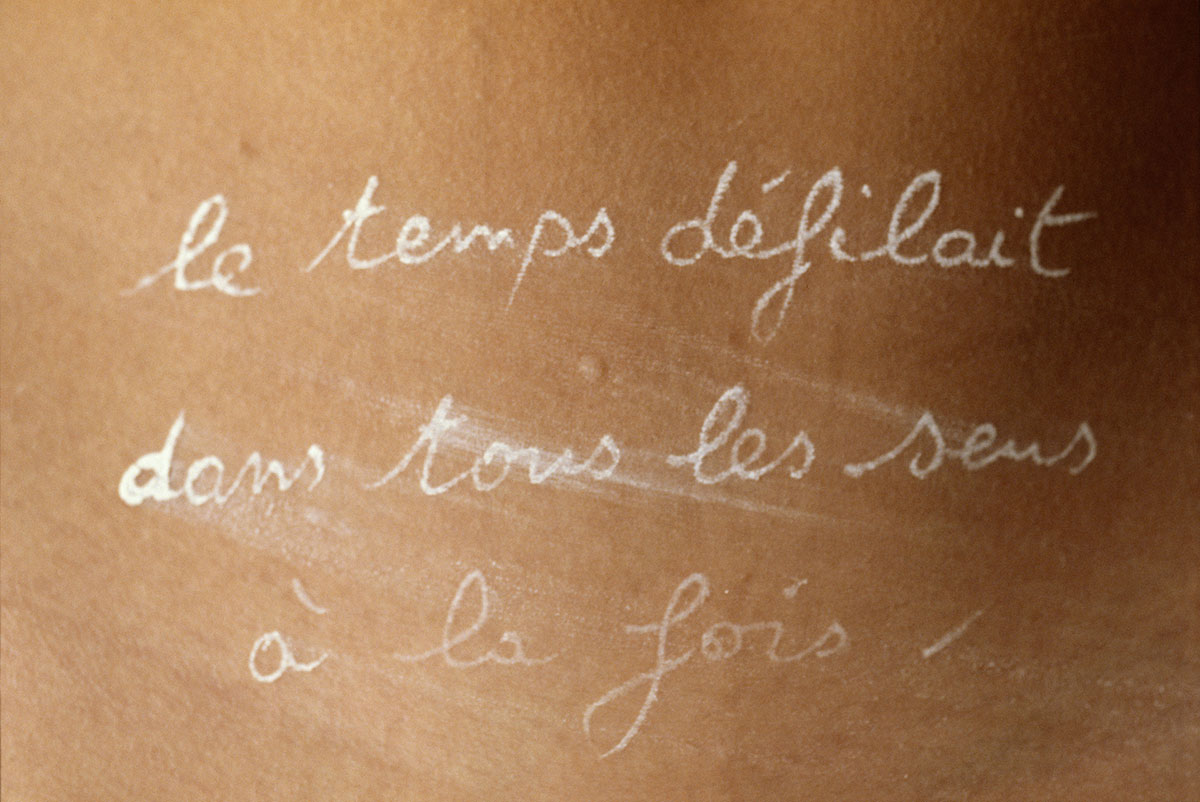 le temps défilait
dans tous les sens
à la fois